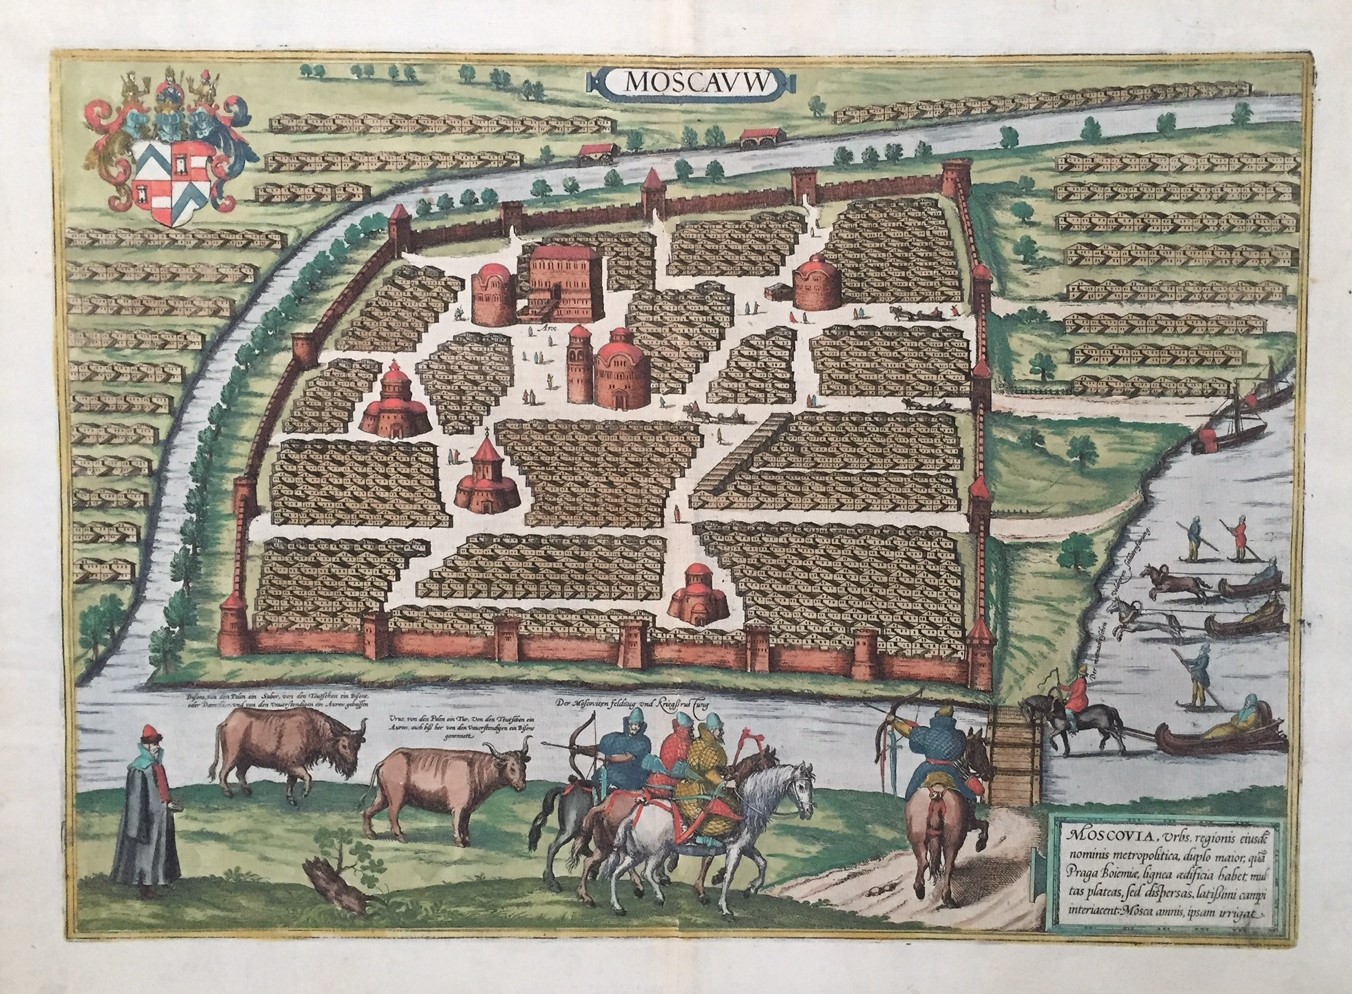 MOSCAVW
Arx
Bisons, von den Polen ein Suber, von den Teutschen ein Bisont,
oder Damthier und von den Unverstendigen ein Aurox geheissen
Urus, von den Polen ein Tur, Von den Teutschen ein
Aurox, auch biß her von den Unverstendigen ein Bisons
genennett.
Der Moscoviten feldzug und Kriegßrustung
MOSCOVIA, Urbs, regionis eiusdē
nominis metropolitica, duplo maior, quā
Praga Boiemiæ, lignea ædificia habet, mul
tas plateas, sed dispersas, latißimi campi
interiacent: Mosca amnis, ipsam irrigat.